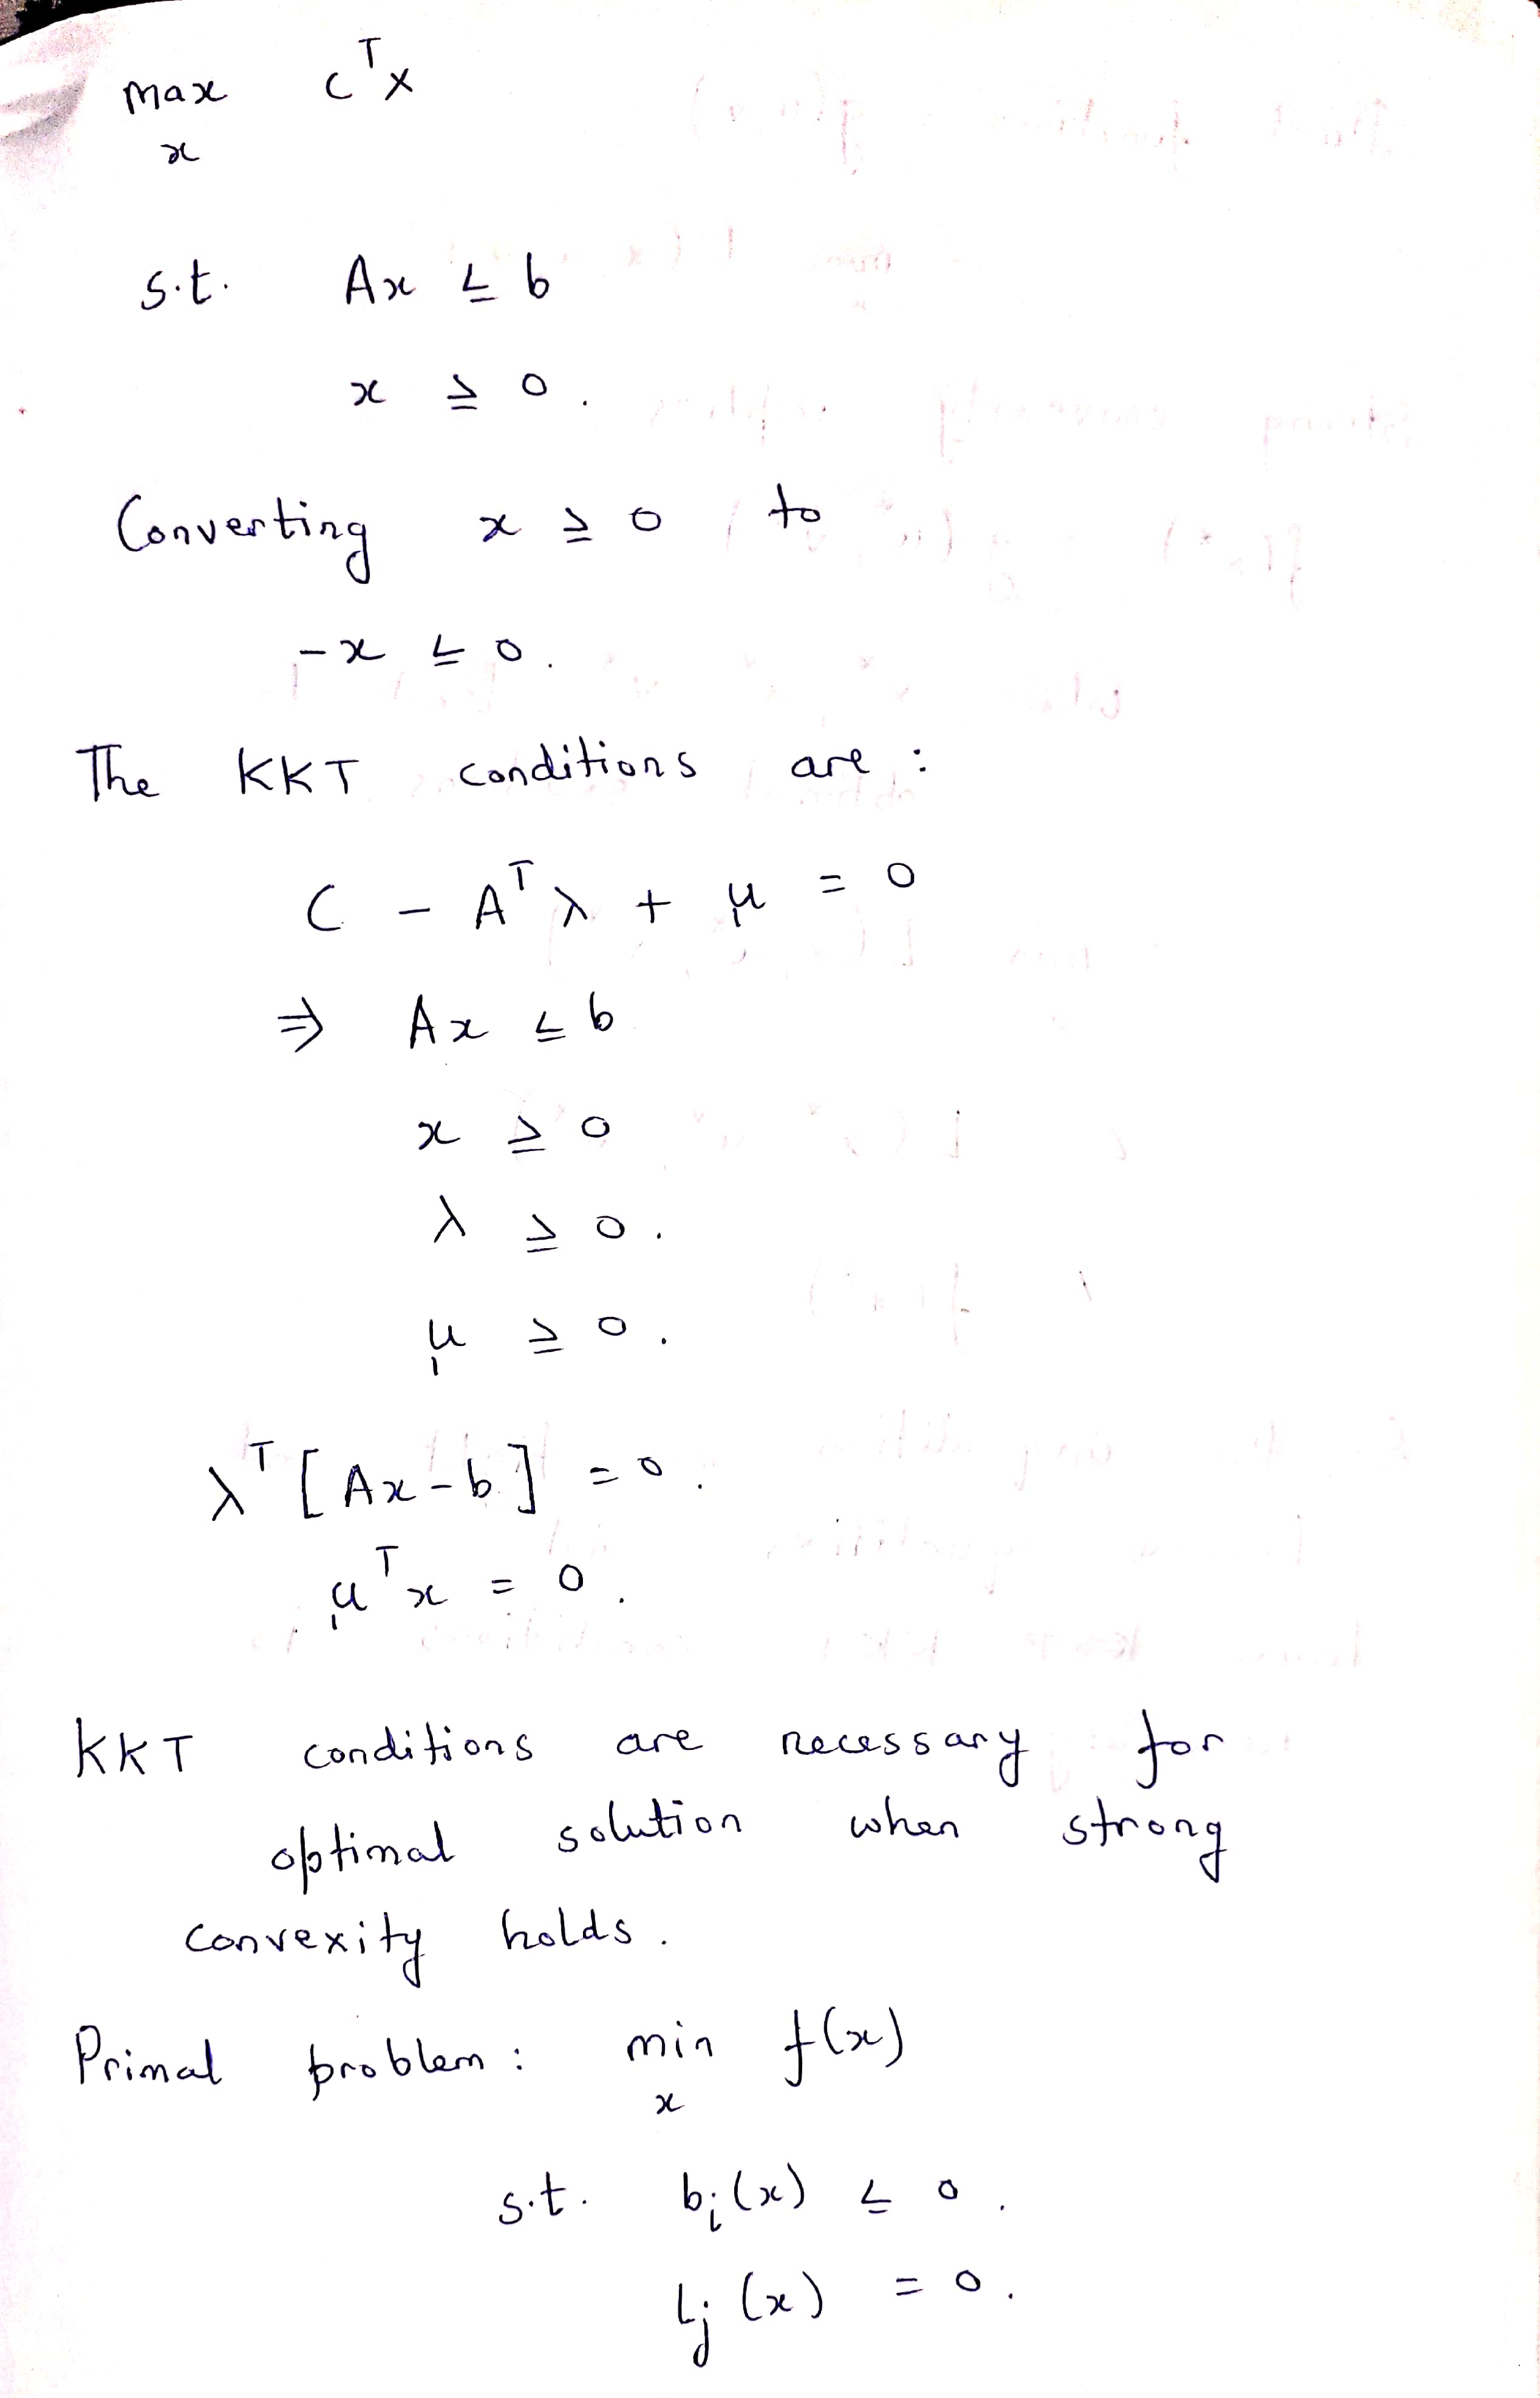 max c^T x
x
s.t. Ax ≤ b
x ≥ 0.
Converting x ≥ 0 to
-x ≤ 0.
The KKT conditions are :
C - A^T λ + μ = 0
⇒ Ax ≤ b
x ≥ 0
λ ≥ 0.
μ ≥ 0.
λ^T [Ax-b] = 0.
μ^T x = 0.
KKT conditions are necessary for
optimal solution when strong
convexity holds.
Primal problem : min f(x)
x
s.t. b_i(x) ≤ 0.
L_j(x) = 0.